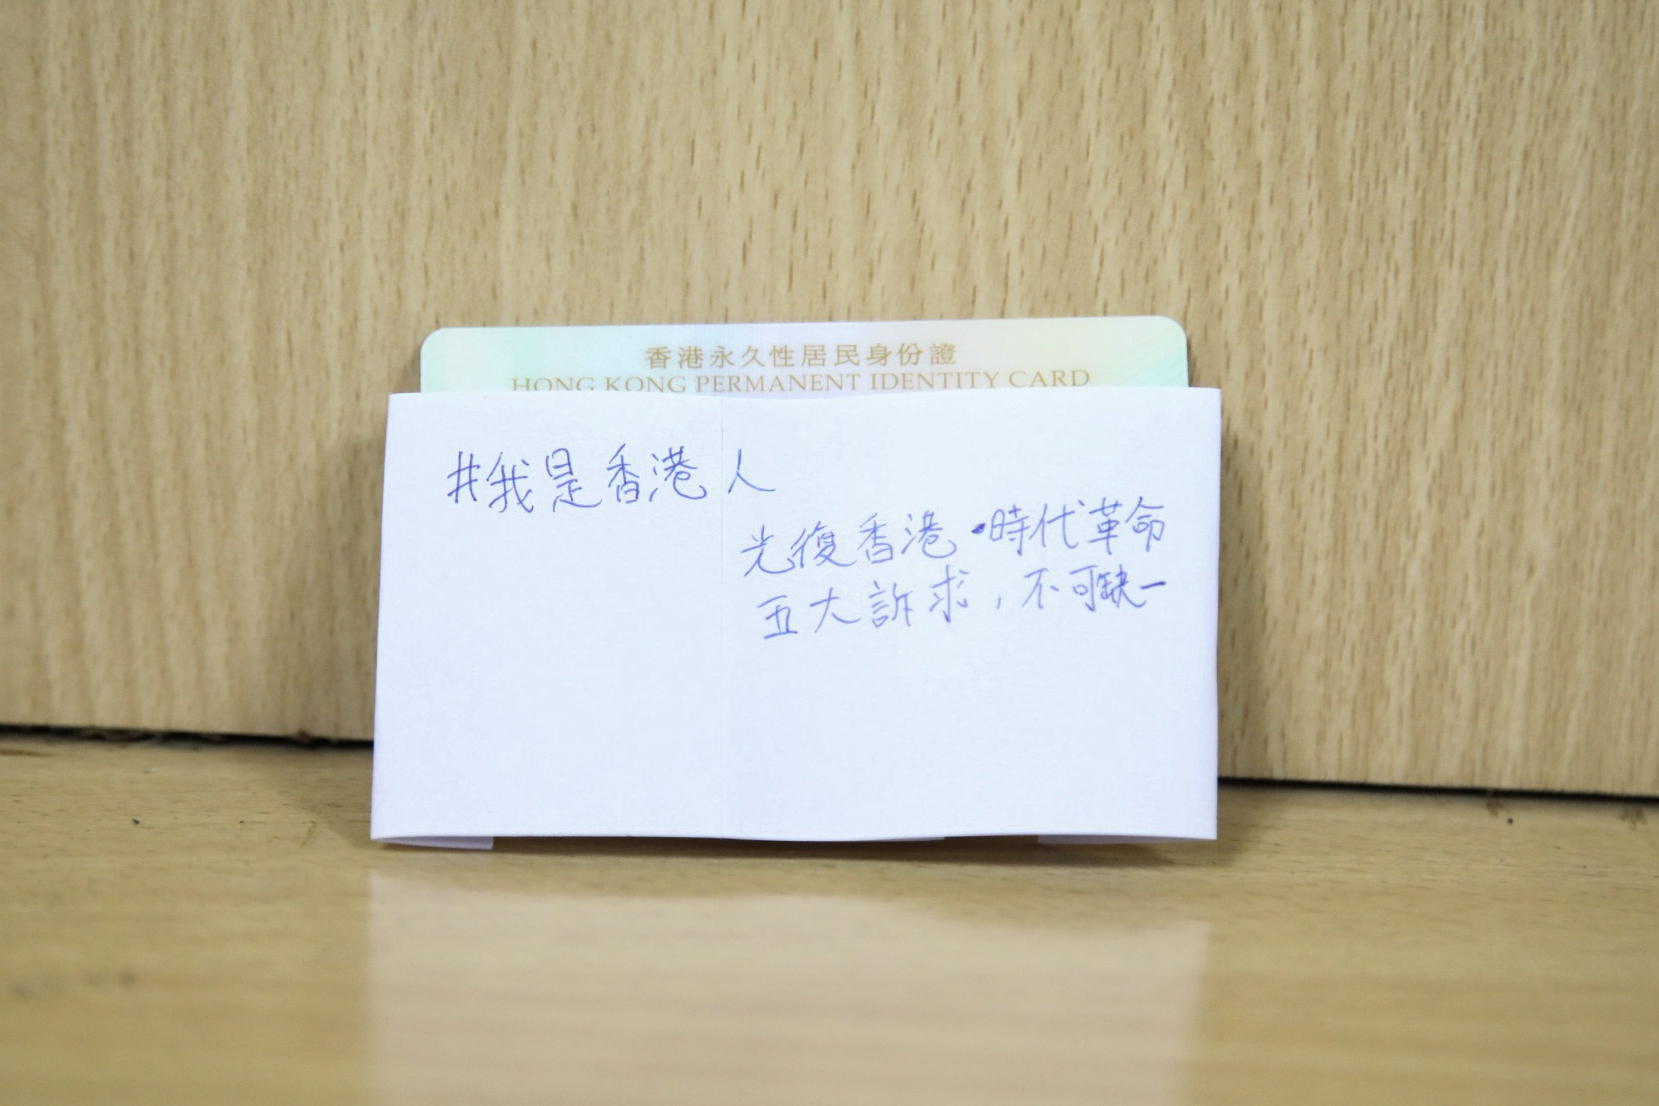 香港永久性居民身份證
HONG KONG PERMANENT IDENTITY CARD
#我是香港人
光復香港·時代革命
五大訴求，不可缺一